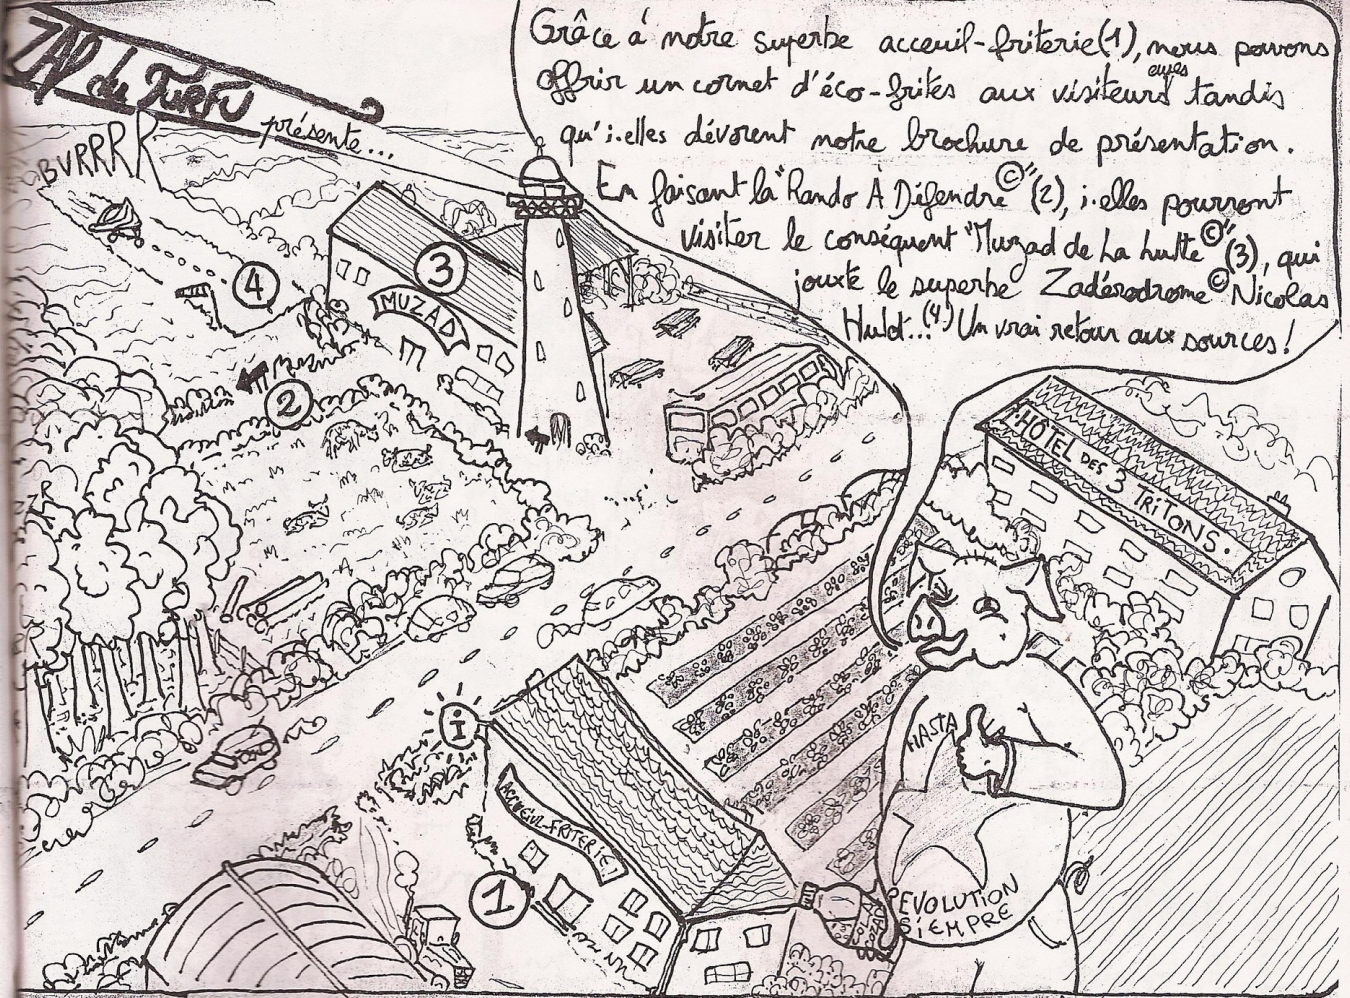 ZAD du TURFU
présente...
Grâce à notre superbe acceuil-friterie(1), nous pouvons
offrir un cornet d'éco-frites aux visiteurs euses tandis
qu'i.elles dévorent notre brochure de présentation.
En faisant la "Rando À Défendre©" (2), i.elles pourront
visiter le conséquent "Muzad de La hulotte©" (3), qui
jouxte le superbe Zadérodrome© Nicolas
Hulot...(4.) Un vrai retour aux sources!
BVRRRR
4
3
MUZAD
2
HÔTEL DES 3 TRITONS.
i
ACCUEUIL-FRITERIE
1
HASTA
REVOLUTION
SIEMPRE